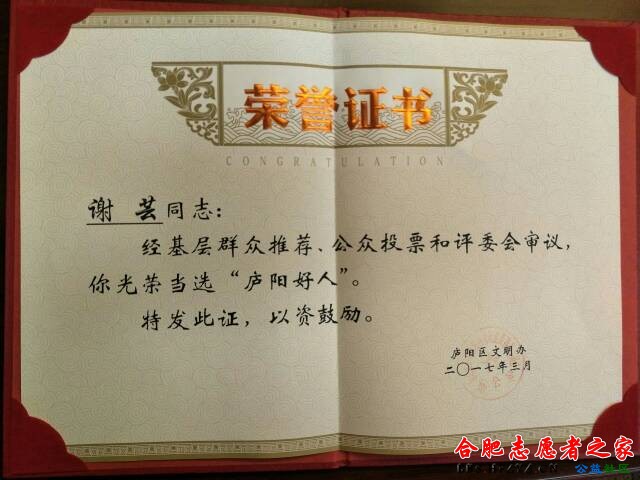 荣誉证书
CONGRATULATION
谢芸同志:
经基层群众推荐、公众投票和评委会审议,
你光荣当选“庐阳好人”。
特发此证,以资鼓励。
庐阳区文明办
二〇一七年三月
合肥志愿者之家
公益社区